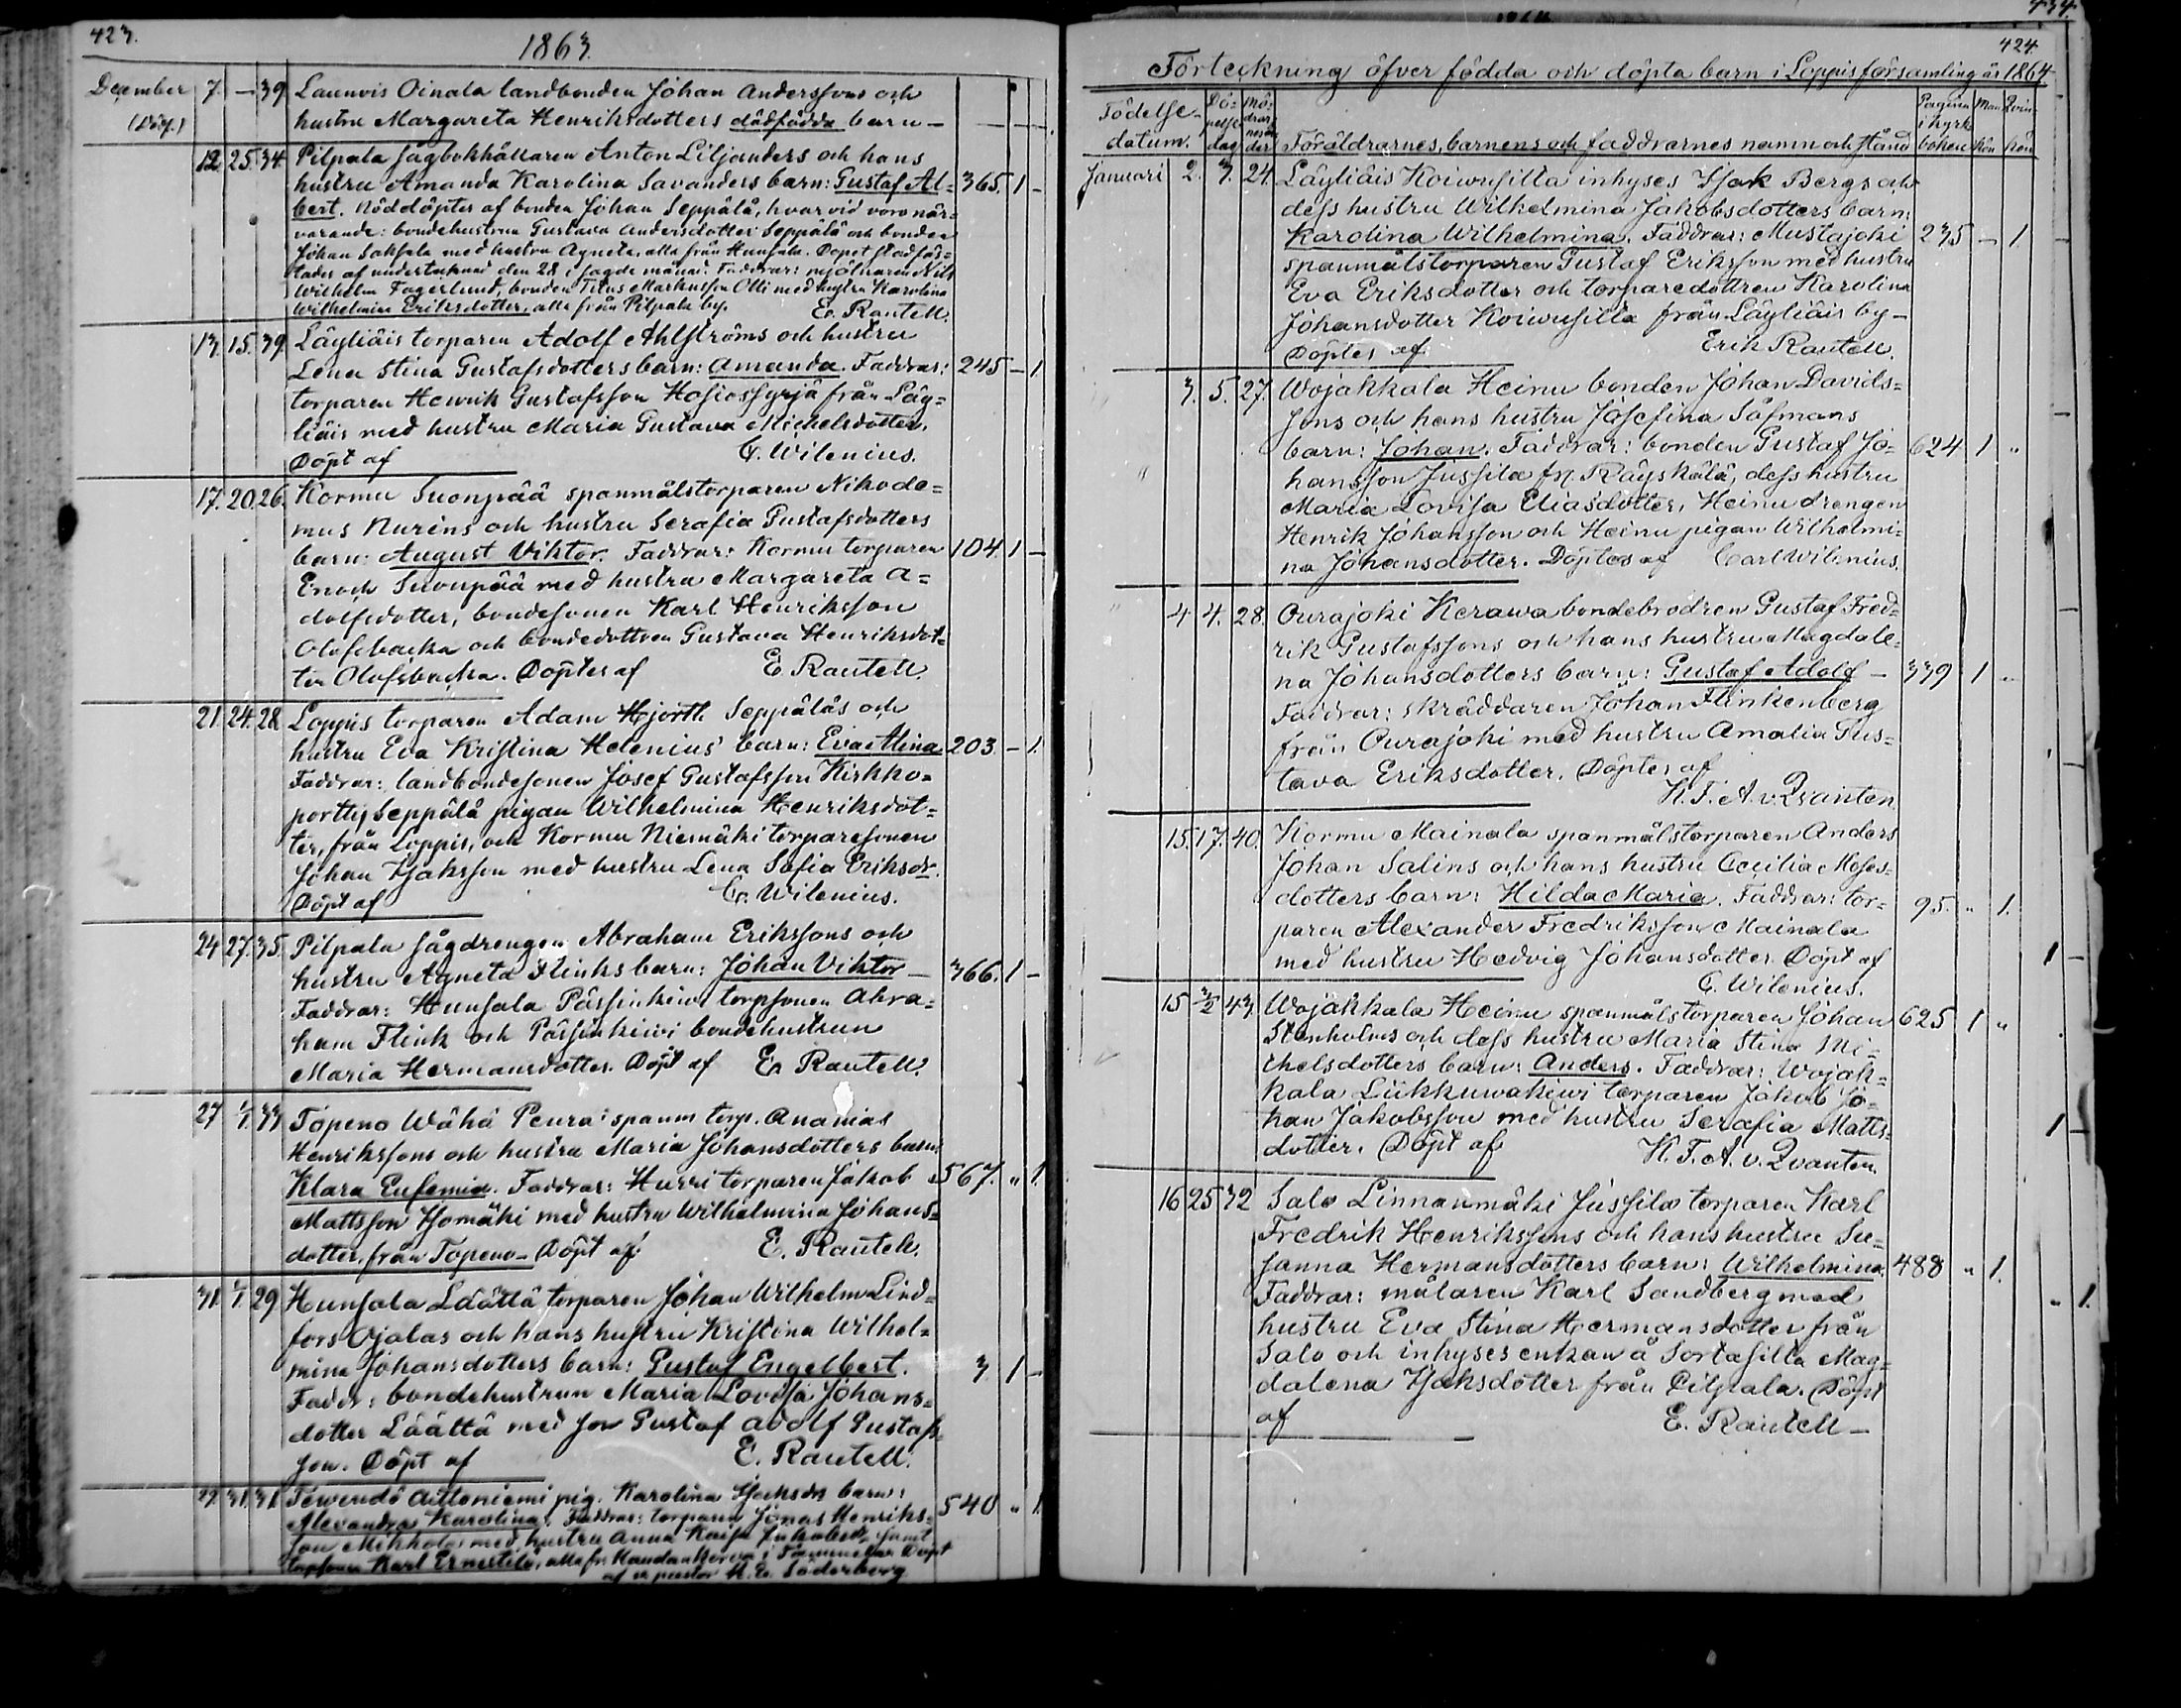 423.
1863.
December 7. — 39 Launois Oinala landbonden Johan Anderssons och
hustru Margareta Henriksdotters dödfödda barn —
12. 25. 34. Pilpala sågbokhållaren Anton Liljanders och hans
hustru Amanda Karolina Savanders barn: Gustaf Al= 365. 1 —
bert. Nöddöptes af bonden Johan Seppälä, hvarvid voro när=
varande: bondehustrun Gustava Andersdotter Seppälä och bonden
Johan Saksala med hustru Agneta, alla från Hunsala. Dopet stadfäs=
tades af undertecknad den 28 i sagde månad. Faddrar: mjölnaren Nils
Wilhelm Fagerlund, bonden Titus Markusson Olli med hustru Karolina
Wilhelmina Eriksdotter, alla från Pilpala by. E. Rautell.
13. 15. 39. Läyliäis torparen Adolf Ahlströms och hustru
Lena Stina Gustafsdotters barn: Amanda. Faddrar: 245 — 1
torparen Henrik Gustafsson från Läy=
liäis med hustru Maria Gustava Michelsdotter.
Döpt af C. Wilenius.
17. 20. 26. Kormu Suonpää spanmålstorparen Nikode=
mus Nurins och hustru Serafia Gustafsdotters
barn: August Viktor. Faddrar: Kormu torparen 104. 1 —
Enoch Suonpää med hustru Margareta A=
dolfsdotter, bondesonen Karl Henriksson
Olofsbacka och bondedottren Gustava Henriksdot=
ter Olofsbacka. Döptes af E. Rautell.
21. 24. 28. Loppis torparen Adam Hjorth Seppäläs och
hustru Eva Kristina Helenius' barn: Eva Alina 203. — 1.
Faddrar: landbondesonen Josef Gustafsson Kirkko=
portti, Seppälä pigan Wilhelmina Henriksdot=
ter, från Loppis, och Kormu Niemäki torparesonen
Johan Isaksson med hustru Lena Sofia Eriksdr.
Döpt af C. Wilenius.
24 27. 35. Pilpala sågdrengen Abraham Erikssons och
hustru Agneta Flinks barn: Johan Viktor — 366. 1 —
Faddrar: Hunsala Pässinkiwi torpsonen Abra=
ham Flink och Pässinkiwi bondehustrun
Maria Hermansdotter. Döpt af E. Rautell.
27 1/1. 33 Topeno Wähä Peura spanm. torp. Ananias
Henrikssons och hustru Maria Johansdotters barn:
Klara Eufemia. Faddrar: Hurri torparen Jakob 567. " 1.
Mattsson Isomäki med hustru Wilhelmina Johans=
dotter, från Topeno — Döpt af E. Rautell.
31. 1/1. 29 Hunsala Läättä torparen Johan Wilhelm Lind=
fors Ojalas och hans hustru Kristina Wilhel=
mina Johansdotters barn: Gustaf Engelbert. 3 1 —
Faddr: bondehustrun Maria Lovisa Johans=
dotter Läättä med son Gustaf Adolf Gustafs=
son. Döpt af E. Rautell.
29. 31. 31. Tewendö Aittoniemi pig. Karolina Isaksdrs barn: 540 " 1.
Alexandra Karolina. Faddrar: torparen Jonas Henriks=
son Mikkola med hustru Anna Kaisa samt
torpsonen Karl Ernestilä, alla fr. i Tammela. Döpt
af v. pastor Söderberg
434.
424.
Förteckning öfver födda och döpta barn i Loppis församling år 1864.
Födelse- datum. Dö- pelse dag Mö- drar- nes ål- der Föräldrarnes, barnens och faddrarnes namn och stånd Pagina i kyrk- boken Man kön Qvin- kön
Januari 2. 3. 24. Läyliäis Koiwusilta inhyses Isak Bergs och
dess hustru Wilhelmina Jakobsdotters barn:
Karolina Wilhelmina. Faddrar: Mustajoki 235 — 1.
spanmålstorparen Gustaf Eriksson med hustru
Eva Eriksdotter och torparedottren Karolina
Johansdotter Koiwusilta från Läyliäis by —
Döptes af Erik Rautell.
" 3. 5. 27. Wojakkala Heinu bonden Johan Davids=
sons och hans hustru Josefina Säfmans
barn: Johan. Faddrar: bonden Gustaf Jo= 624 1 "
hansson Jussila fr. Räyskälä, dess hustru
Maria Lovisa Eliasdotter, Heinu drengen
Henrik Johansson och Heinu pigan Wilhelmi=
na Johansdotter. Döptes af Carl Wilenius.
" 4 4. 28. Ourajoki Kerawa bondebrodren Gustaf Fred=
rik Gustafssons och hans hustru Magdale=
na Johansdotters barn: Gustaf Adolf — 339 1 "
Faddrar: skräddaren Johan Flinkenberg
från Ourajoki med hustru Amalia Gus=
tava Eriksdotter. Döptes af
K. F. A. v. Qvanten
15. 17. 40. Kormu Mainala spanmålstorparen Anders
Johan Salins och hans hustru Cecilia Moses=
dotters barn: Hilda Maria. Faddrar: tor= 95. " 1.
paren Alexander Fredriksson Mainala
med hustru Hedvig Johansdotter. Döpt af
C. Wilenius.
15 3/2 43 Wojakkala Heinu spanmålstorparen Johan 625 1 "
Stenholms och dess hustru Maria Stina Mi=
chelsdotters barn: Anders. Faddrar: Wojak=
kala Liikkuwakiwi torparen Jakob Jo=
han Jakobsson med hustru Serafia Matts=
dotter. Döpt af K. F. A. v. Qvanten.
16 25 32 Salo Linnanmäki Jussila torparen Karl
Fredrik Henrikssons och hans hustru Su=
sanna Hermansdotters barn: Wilhelmina. 488 " 1.
Faddrar: målaren Karl Sandberg med
hustru Eva Stina Hermansdotter från
Salo och inhyses enkan å Sortasilta Mag=
dalena Isaksdotter från Pilpala. Döpt
af E. Rautell —